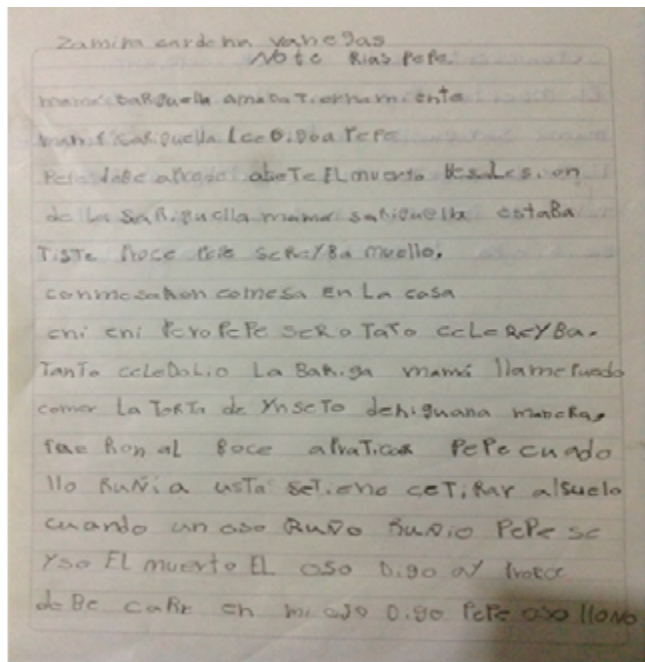 zamira cardena vanegas
No te Rias PePe
mamá saRguella amaBa Tiernamiente
mamá saRiguella Lee Digo a PePe
PePe deBe aPrede aseTe EL muerto
de La saRiguella mama saRiguella estaBa
TisTe Proce PePe se ReyBa muello.
comesaRon comesa En La casa
cni cni PeroPePe seRo TaTo ceLe ReyBa.
TanTo ceLe DoLio La BaRiga mamá lla me Puedo
comer La ToRTa de YnseTo de higuana
fueRon al Boce a PraTicaR PePe cuado
llo RuÑia usTa seTiene ce TiRar alsuelo
cuando un oso RuÑo RuÑio PePe se
Yso EL muerto EL oso Digo aY Proce
deBe caRe en mi ojo Digo PePe oso llo No